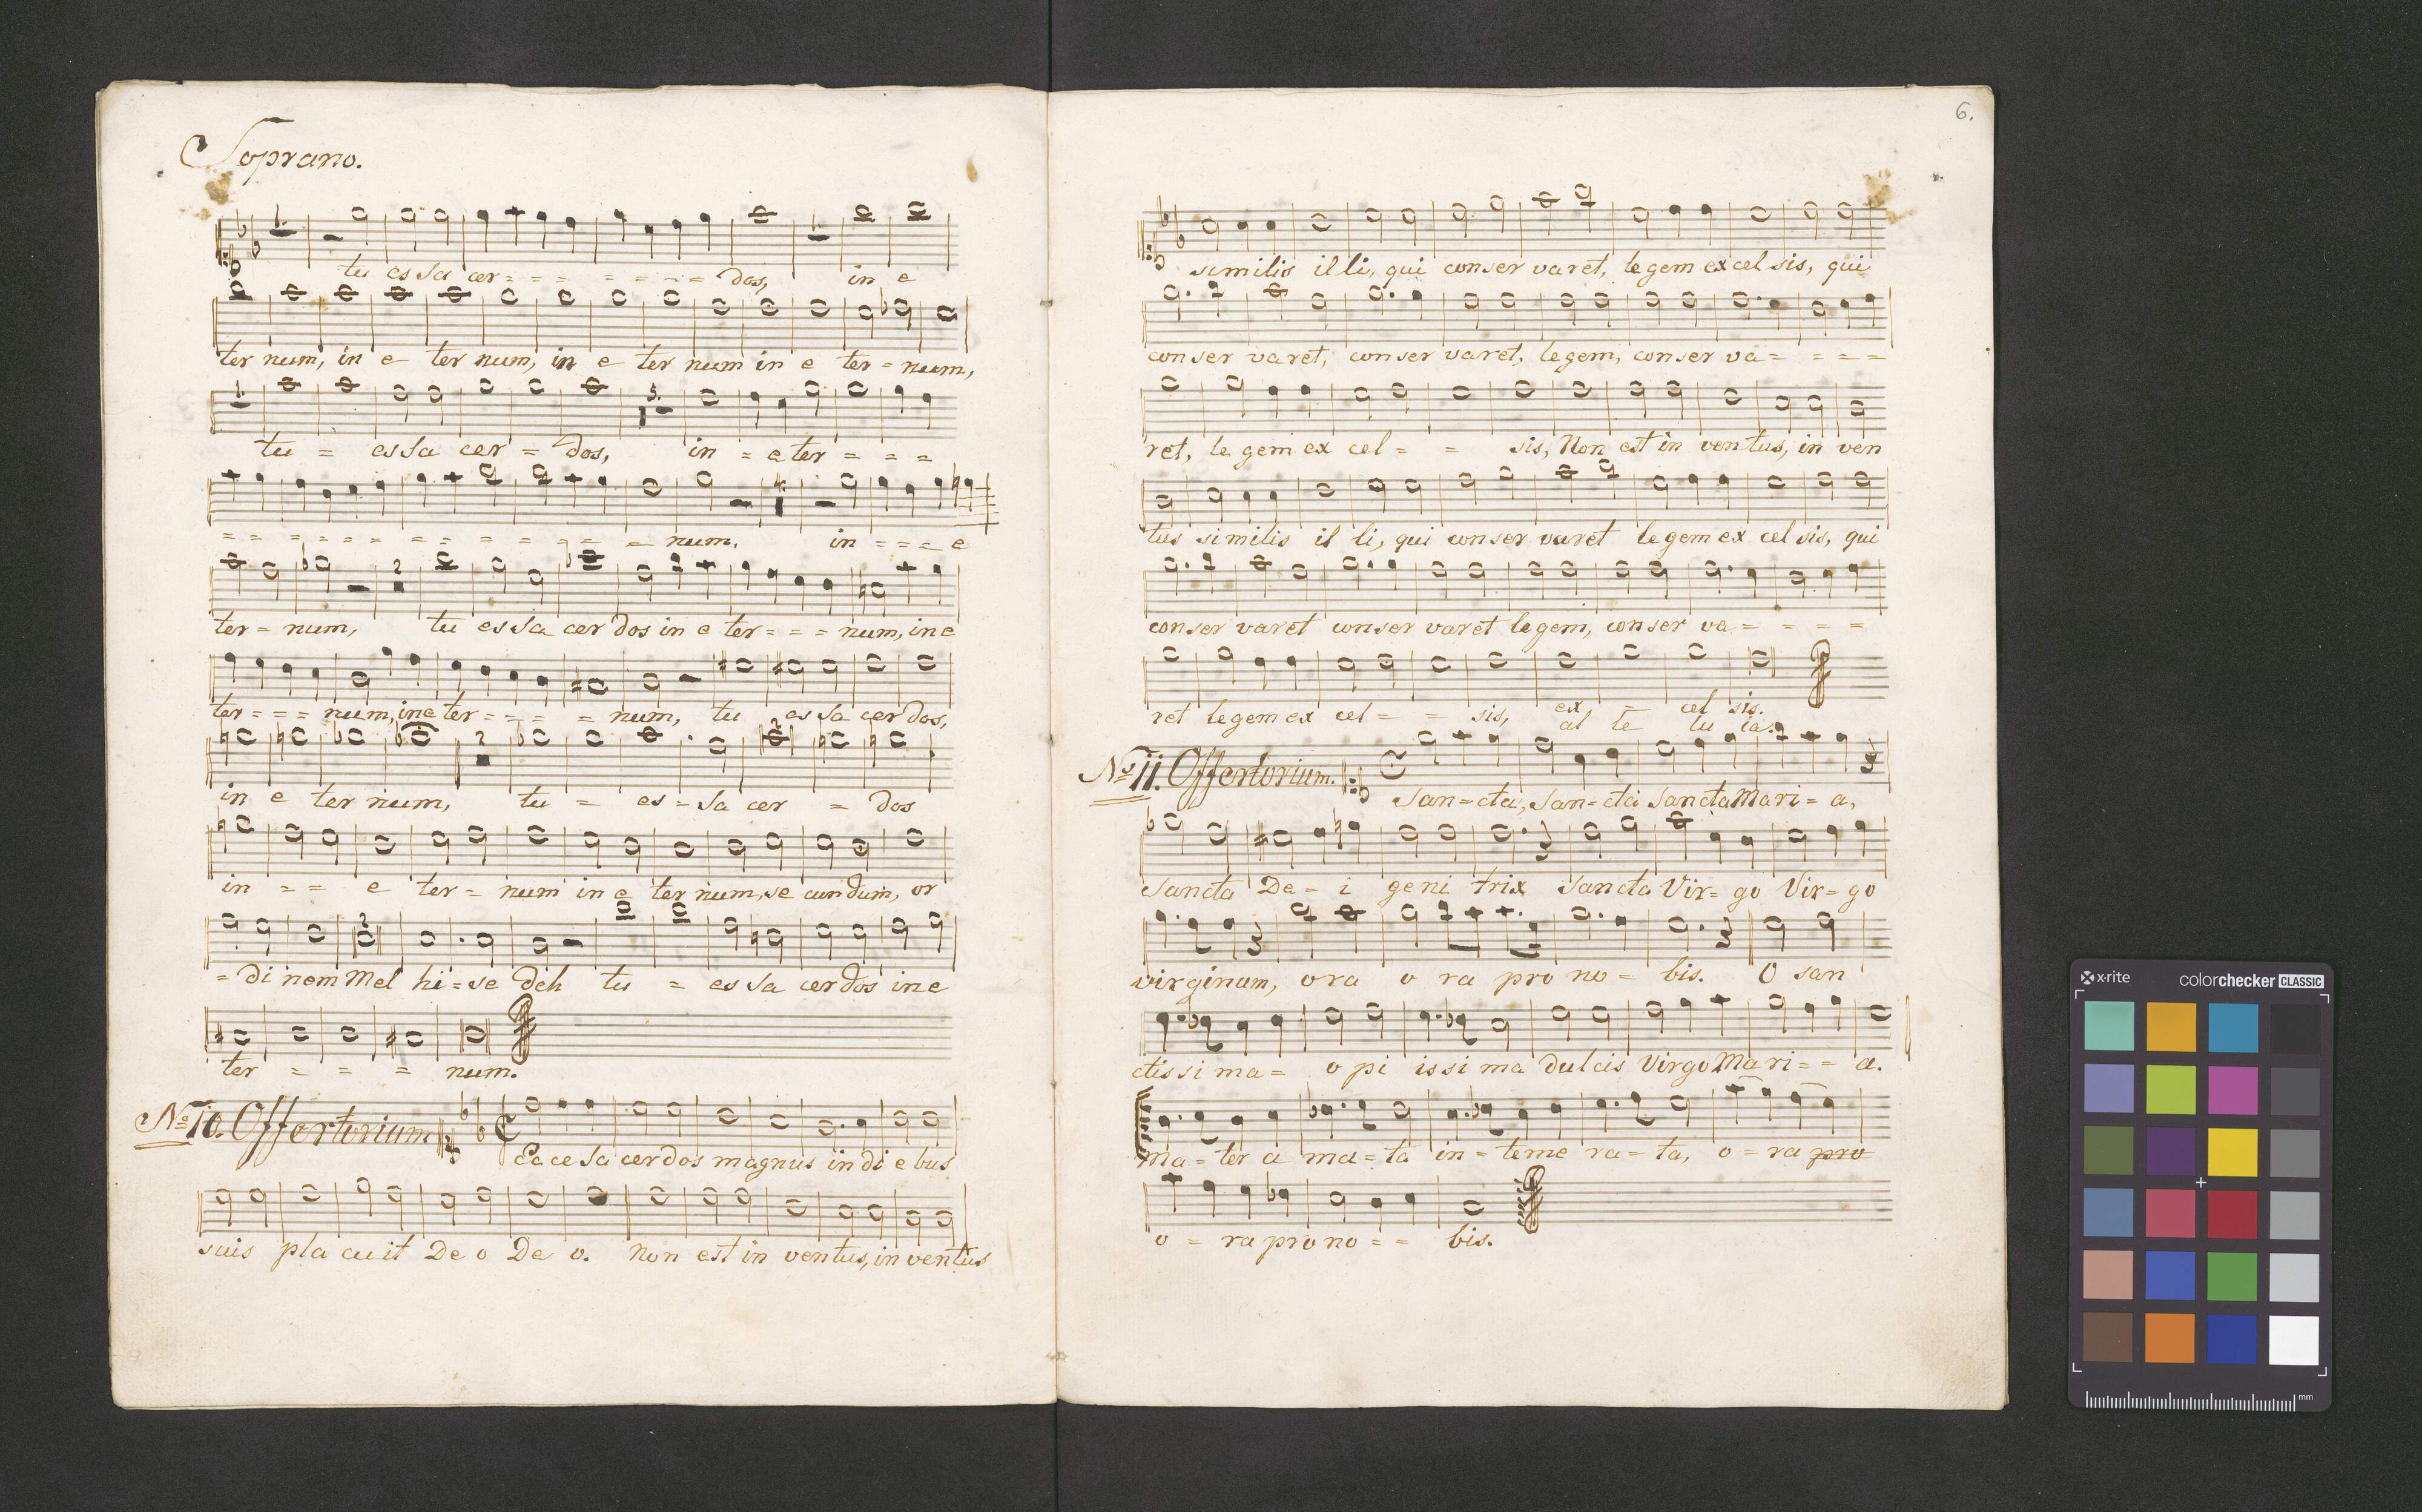 Soprano.
1.
tu es Sa cer = = = = = = = dos, in e
ter num, in e ter num, in e ter num in e ter = num,
1. 5.
tu = es Sa cer = dos, in = e ter = = =
4.
= = = = = = = = = = = = num. in = = = e
2
ter = num, tu es Sa cer dos in e ter = = = num, in e
ter = = = num, in e ter = = = = num, tu es Sa cer dos,
2 2
in e ter num, tu = es = Sa cer = dos
in = = e ter = num in e ter num, se cun dum, or
2
= di nem Mel hi = se deh tu = es Sa cer dos in e
ter = = = num.
No 10. Offertorium
Ecce Sa cer dos magnus in di e bus
suis pla cuit De o De o. Non est in ventus, in ventus
6.
similis il li, qui conser varet, legem excel sis, qui
conser varet, conser varet, legem, conser va = = = =
ret, le gem ex cel = = sis, Non est in ventus, in ven
tus similis il li, qui conser varet legem ex cel sis, qui
conser varet conser varet legem, conser va = = = =
ret legem ex cel = = sis, ex = cel sis.
al le lu ia.
No 11. Offertorium.
San = cta, San = cta Sancta Mari = a,
Sancta De = i geni trix Sancta Vir = go Vir = go
virginum, ora o ra pro no = bis. O san
ctis si ma = o pi issi ma dulcis Virgo Ma ri = = a.
Ma = ter a ma = ta in = teme ra = ta, o = ra pro
o = ra pro no = = bis.
x-rite
colorchecker CLASSIC
mm